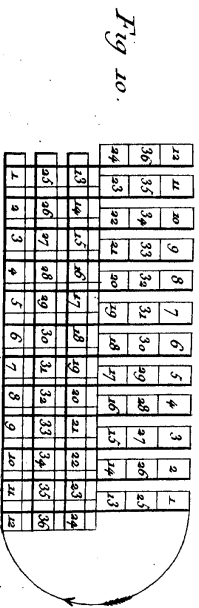 Fig 10.
12 11 10 9 8 7 6 5 4 3 2 1
36 35 34 33 32 31 30 29 28 27 26 25
24 23 22 21 20 19 18 17 16 15 14 13
13 14 15 16 17 18 19 20 21 22 23 24
25 26 27 28 29 30 31 32 33 34 35 36
1 2 3 4 5 6 7 8 9 10 11 12